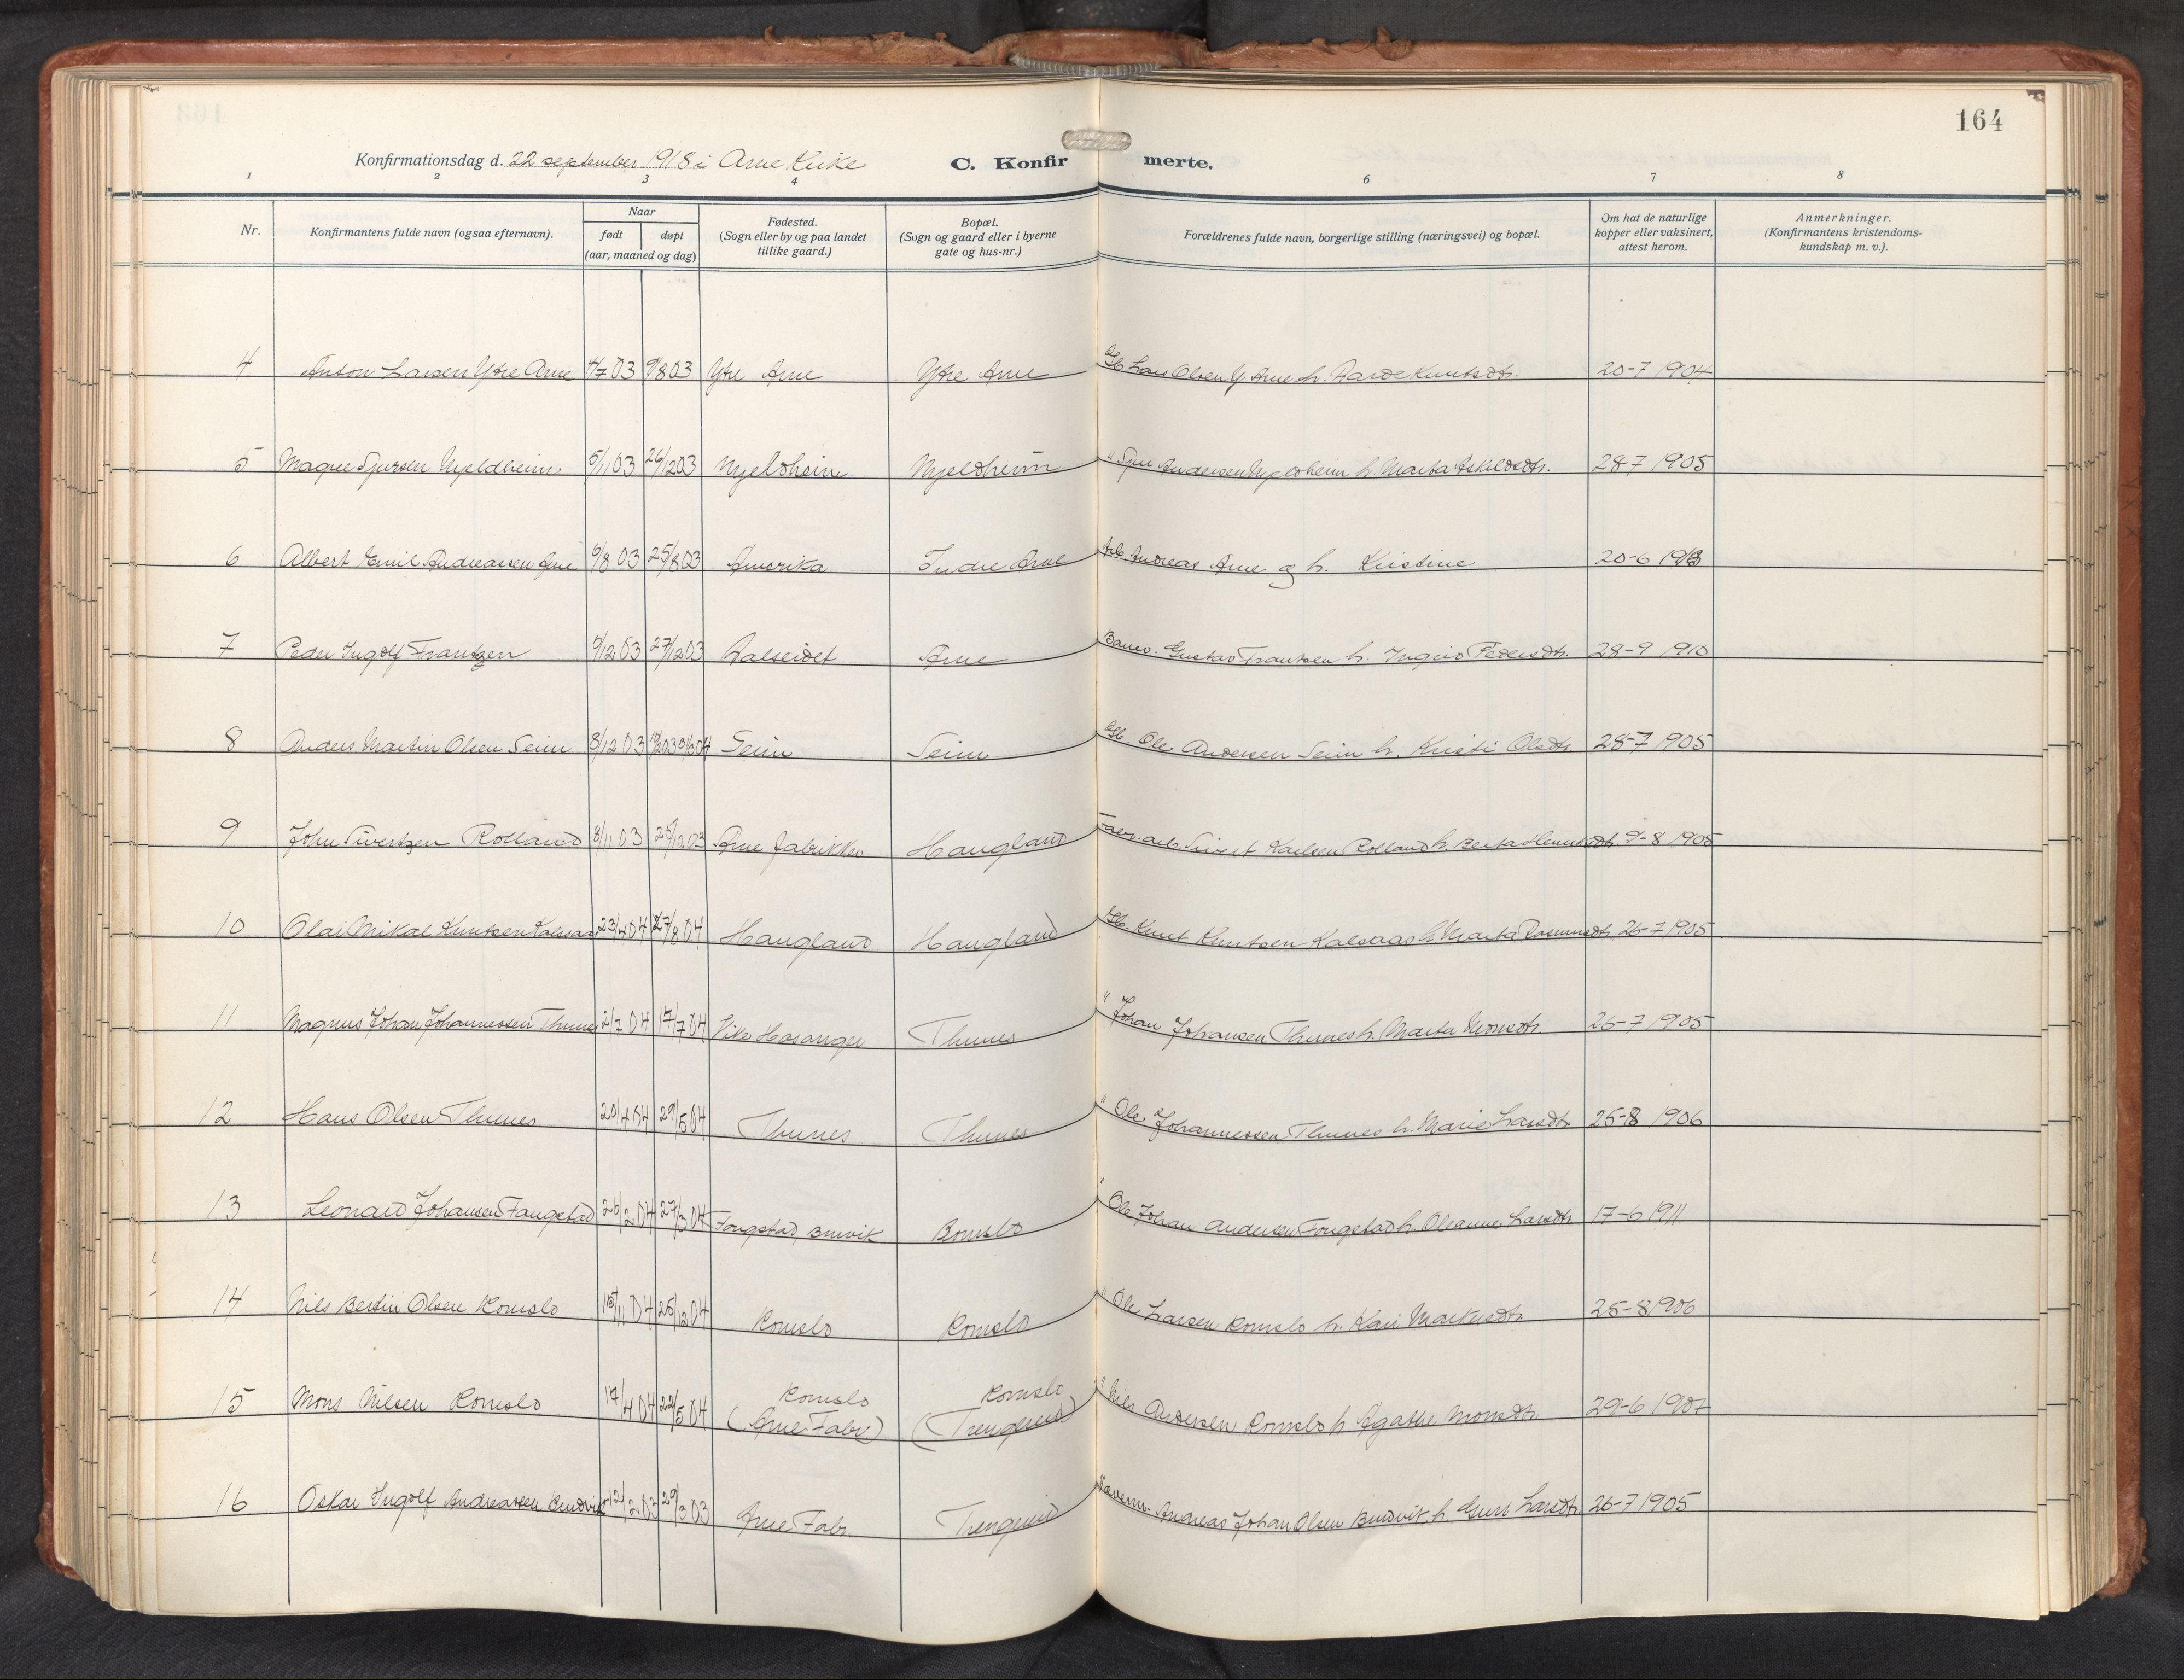 164
Konfirmationsdag d. 22 september 1918 i Arne Kirke C. Konfir merte.
1 2 3 4 6 7 8
Nr. Konfirmantens fulde navn (ogsaa efternavn). Naar født døpt (aar, maaned og dag) Fødested. (Sogn eller by og paa landet tillike gaard.) Bopæl. (Sogn og gaard eller i byerne gate og hus-nr.) Forældrenes fulde navn, borgerlige stilling (næringsvei) og bopæl. Om hat de naturlige kopper eller vaksinert, attest herom. Anmerkninger. (Konfirmantens kristendoms- kundskap m. v.).
4 Anton Larsen Ytre Arne 4/7 03 9/8 03 Ytre Arne Ytre Arne Gb. Lars Olsen Y Arne h. Knutsdtr. 20-7 1904
5 Magne Sjursen Mjeldheim 5/11 03 26/12 03 Mjeldheim Mjeldheim " Sjur Andersen Mjeldheim h. Marta Askildsdtr. 28-7 1905
6 Albert Emil Andreassen Arne 6/8 03 25/8 03 Amerika Indre Arne Arb. Andreas Arne og h. Kristine 20-6 1918
7 Peder Ingolf Frantzen 9/12 03 27/12 03 Dalseidet Arne Banev. Gustav Frantzen h. Ingrid Pedersdtr. 28-9 1910
8 Anders Martin Olsen Seim 8/12 03 Seim Seim Gb. Ole Andersen Seim h. Kristi Olsdtr. 28-7 1905
9 John Sivertzen Rolland 8/11 03 25/12 03 Arne fabrikker Haugland Fabr. arb. Sivert Karlsen Rolland h. Berta 9-8 1905
10 Olai Mikal Knutsen Kalsaas 23/4 04 27/8 04 Haugland Haugland Gb. Knut Knutsen Kalsaas h. Marta Rasmusdtr. 26-7 1905
11 Magnus Johan Johannessen Thunes 2/7 04 17/7 04 Vike Hosanger Thunes " Johan Johansen Thunes h. Marta Monsdtr. 26-7 1905
12 Hans Olsen Thunes 20/4 04 29/5 04 Thunes Thunes " Ole Johannessen Thunes h. Marie Larsdtr. 25-8 1906
13 Leonard Johansen Fangstad 26/2 04 27/3 04 Fougstad, Bruvik Romslo " Ole Johan Andersen Fougstad h. Oleanna Larsdtr. 17-6 1911
14 Nils Bertin Olsen Romslo 15/11 04 26/12 04 Romslo Romslo " Ole Larsen Romslo h. Kari Markusdtr. 25-8 1906
15 Mons Nilsen Romslo 17/4 04 22/5 04 Romslo (Arne Fabr) Romslo (Trengereid) " Nils Andersen Romslo h. Agathe Monsdtr. 29-6 1907
16 Oskar Ingolf Andreassen Bruvik 12/2 03 29/3 03 Arne Fabr Trengereid Andreas Johan Olsen Bruvik h. Guro Larsdtr. 26-7 1905